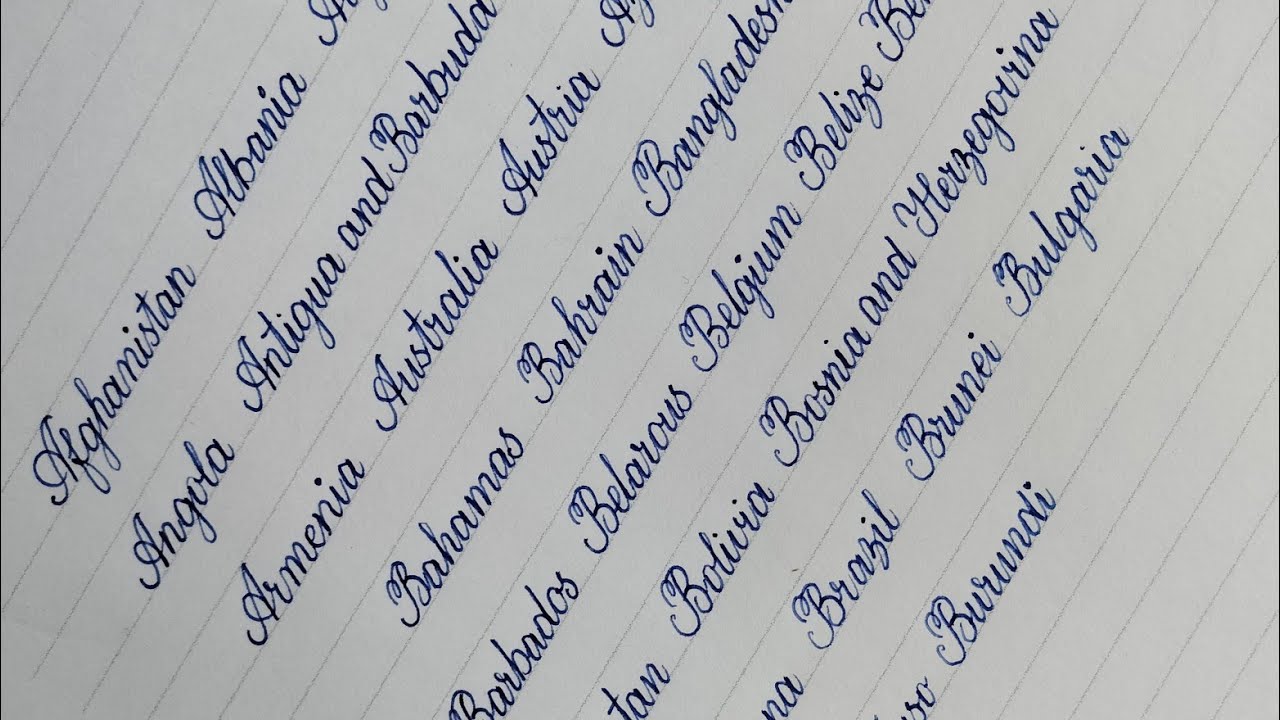 Afghanistan Albania
Angola Antigua and Barbuda
Armenia Australia Austria
Bahamas Bahrain Bangladesh
Barbados Belarous Belgium Belize
Bolivia Bosnia and Herzegovina
Brazil Brunei Bulgaria
Burundi